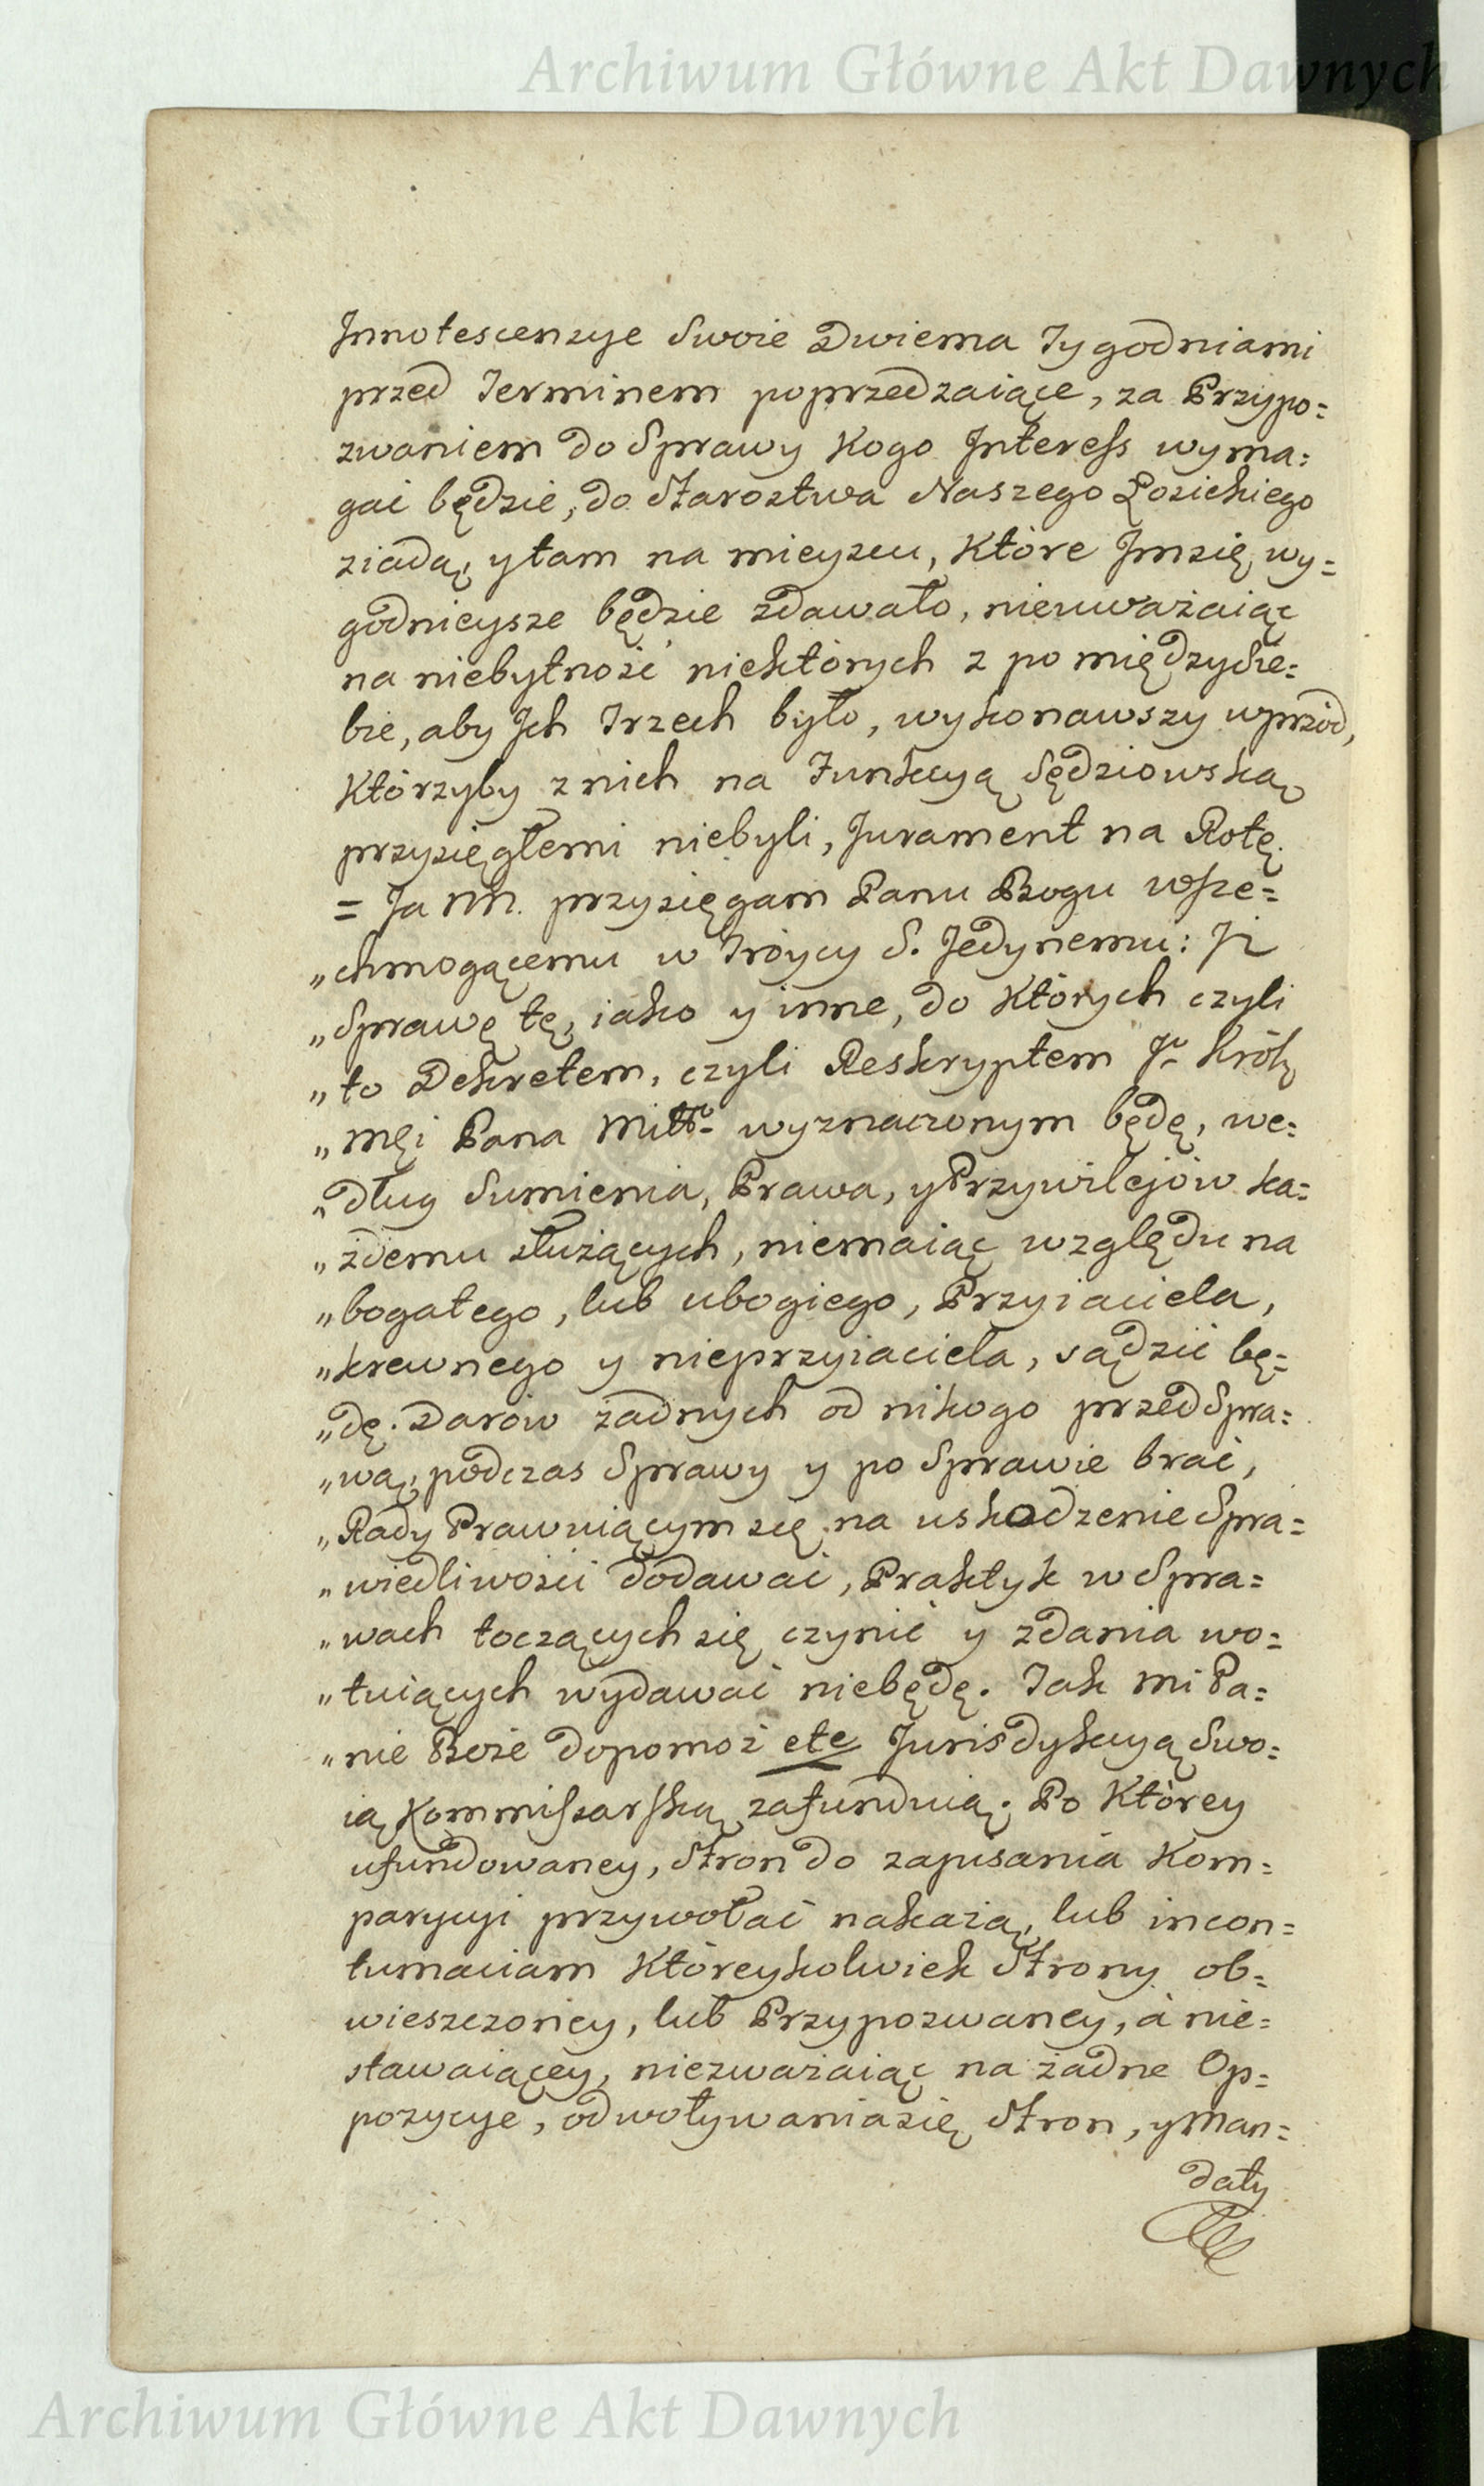 Archiwum Główne Akt Dawnych
Innotescenzye Swoie Dwiema Tygodniami
przed Terminem poprzedzaiące, za Przypo=
zwaniem do Sprawy kogo Interess wyma=
gać będzie, do Starostwa Naszego Łosickiego
ziadą, y tam na mieyscu, które Im się wy=
godnieysze będzie zdawało, nieuważaiąc
na niebytność niektórych z pomiędzy sie=
bie, aby Ich Trzech było, wykonawszy wprzód,
którzyby z nich na Funkcyą Sędziowską
przysięgłemi niebyli, Jurament na Rotę.
= Ja NN. przysięgam Panu Bogu wsze=
„chmogącemu w Tróycy S. Jedynemu: Iż
„Sprawę tę, iako y inne, do których czyli
„to Dekretem, czyli Reskryptem Jo Królę
„Męi Pana Miłło wyznaczonym będę, we=
„dług Sumienia, Prawa, y Przywilejów ka=
„żdemu służących, niemaiąc względu na
„bogatego, lub ubogiego, Przyiaciela,
„krewnego y nieprzyiaciela, sądzić bę=
„dę. Darów żadnych od nikogo przed Spra=
„wą, podczas Sprawy y po Sprawie brać,
„Rady Prawuiącym się na uskodzenie Spra=
„wiedliwości dodawać, Praktyk w Spra=
„wach toczących się czynić y zdania wo=
„tuiących wydawać niebędę. Tak mi Pa=
„nie Boże dopomoż etc Jurisdykcyą Swo=
ią Kommissarską zafunduią. Po którey
ufundowaney, Stron do zapisania Kom=
parycyi przywołać nakażą, lub in con=
tumaciam któreykolwiek Strony ob=
wieszczoney, lub Przypozwaney, à nie=
stawaiącey, niezważaiąc na żadne Op=
pozycye, odwoływania się Stron, y Man=
daty
Archiwum Główne Akt Dawnych